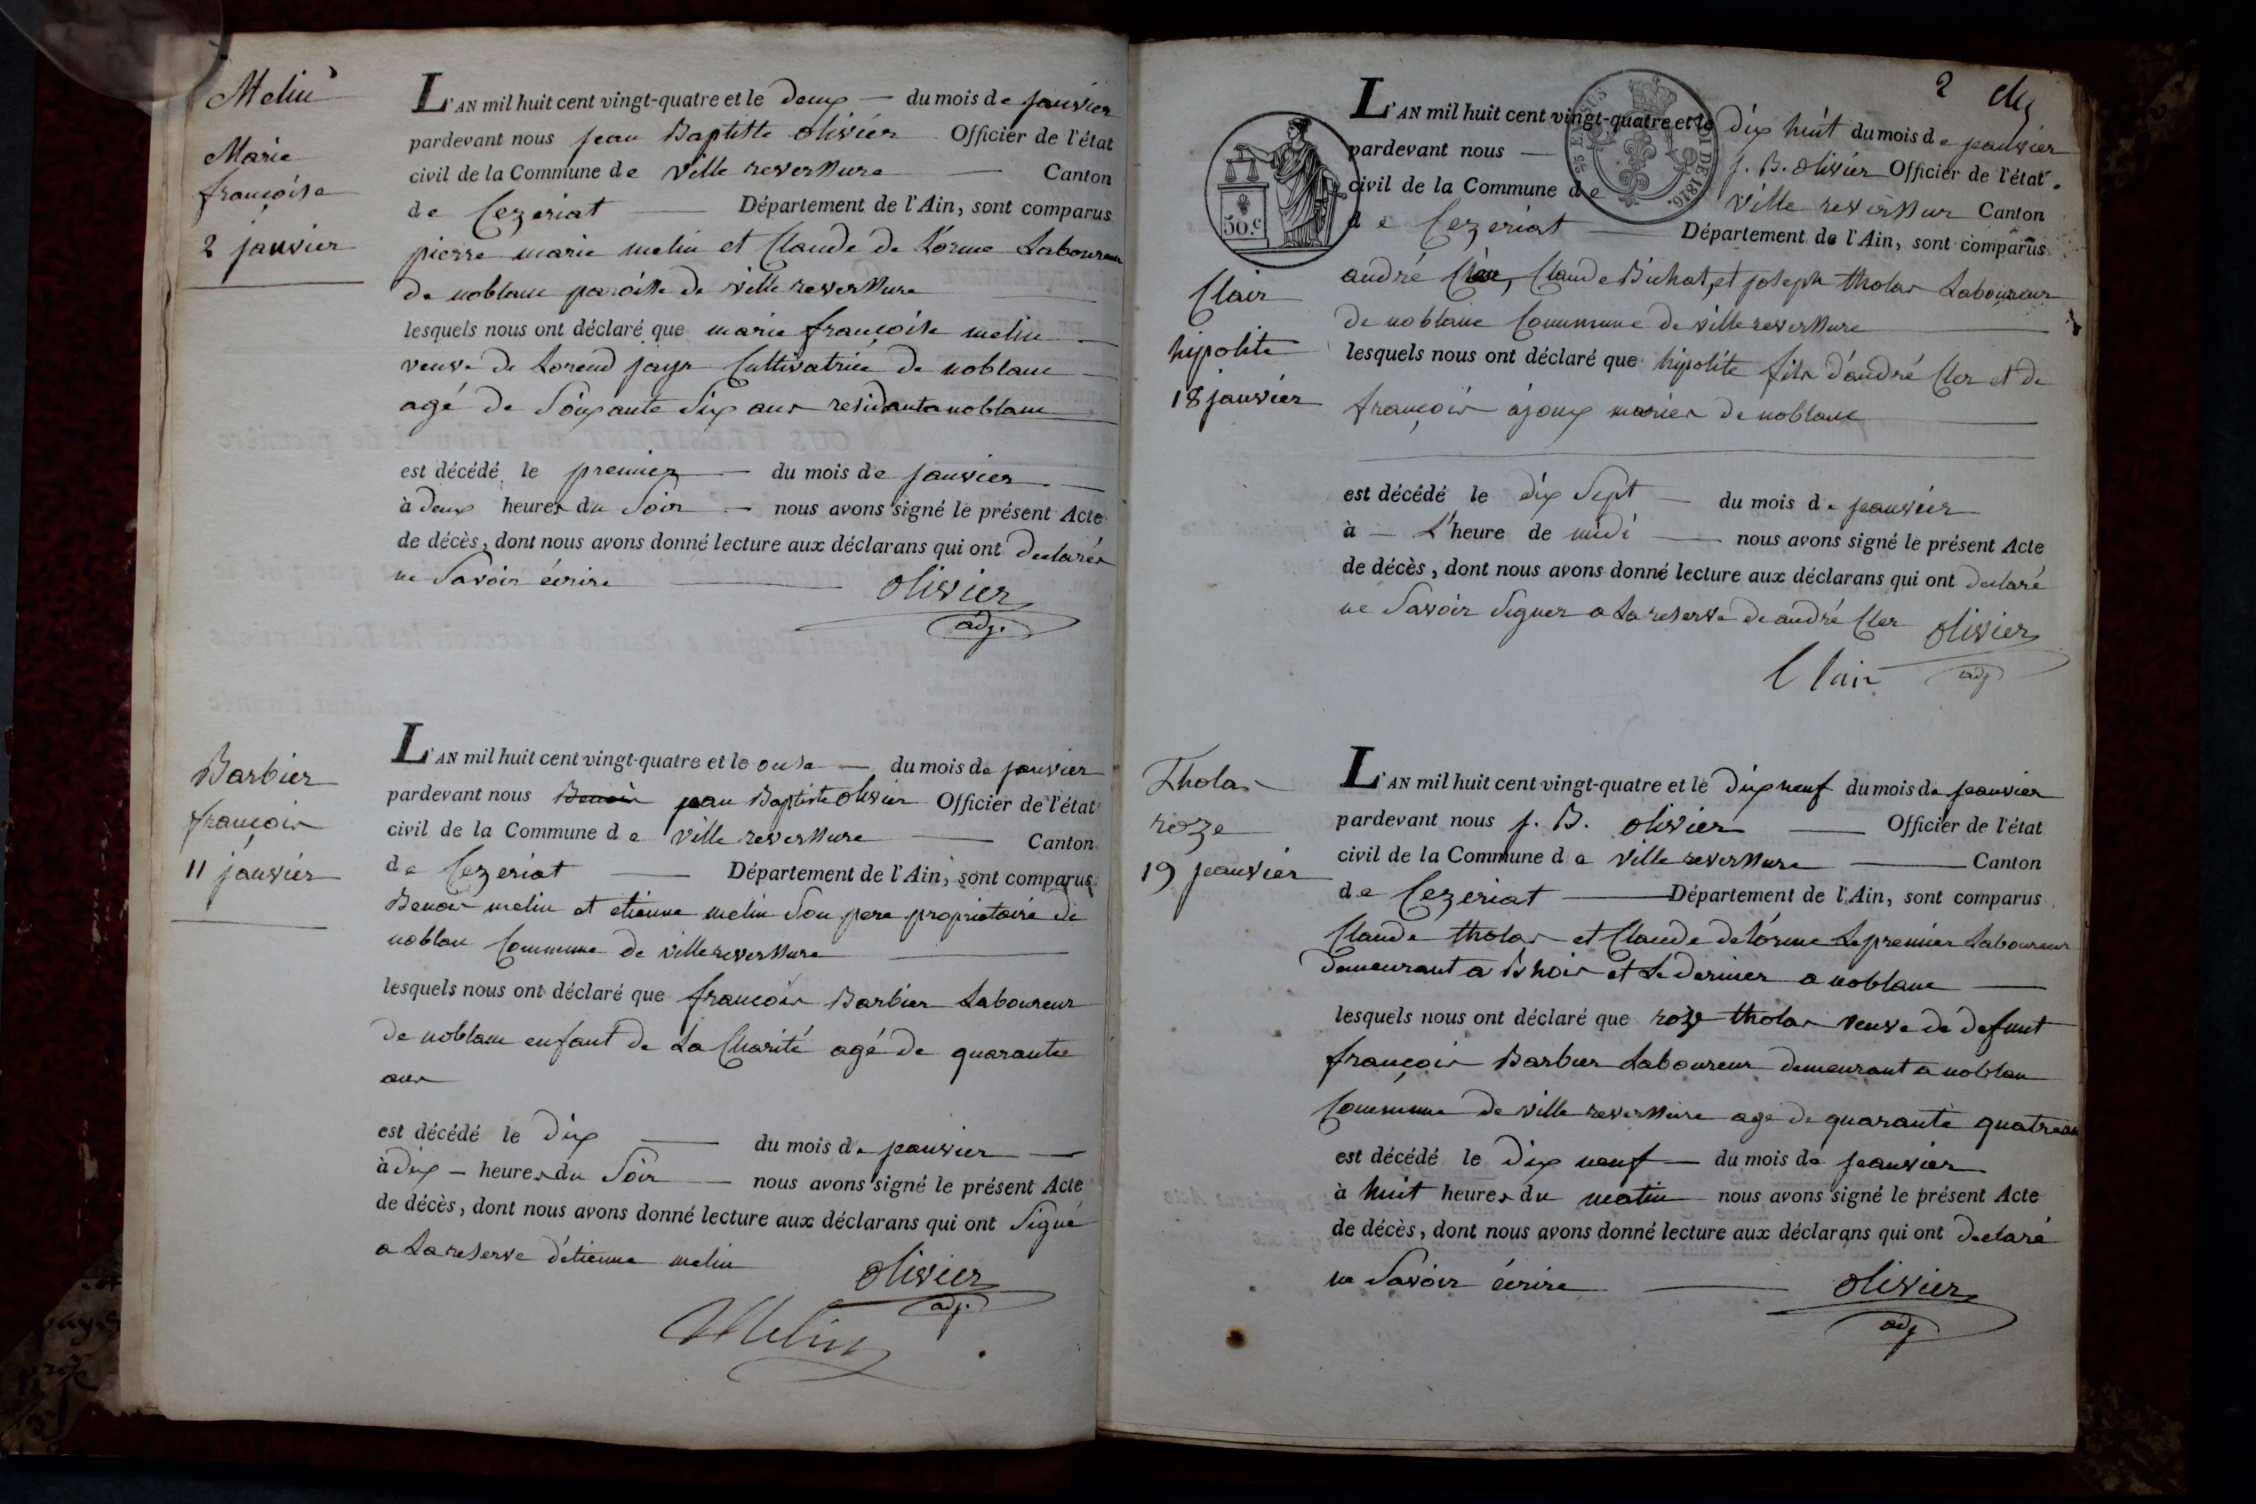 Melin
Marie
françoise
2 janvier
L'AN mil huit cent vingt-quatre et le deux du mois de janvier
pardevant nous jean Baptiste olivier Officier de l'état
civil de la Commune de ville reverssure Canton
de Cezeriat Département de l'Ain, sont comparus
pierre marie melin et Claude de Lorme Laboureur
de noblanc paroisse de ville reverssure
lesquels nous ont déclaré que marie françoise melin
veuve de Cultivatrice de noblanc
agé de Soixante Six ans residanta noblanc
est décédé le premier du mois de janvier
à deux heures du Soir nous avons signé le présent Acte
de décès, dont nous avons donné lecture aux déclarans qui ont declarés
ne Savoir écrire
olivier
adj.
Barbier
françois
11 janvier
L'AN mil huit cent vingt-quatre et le onse du mois de janvier
pardevant nous Benoir jean Baptiste olivier Officier de l'état
civil de la Commune de ville reverssure Canton
de Cezeriat Département de l'Ain, sont comparus
Benoir melin et etienne melin Son pere proprietaire de
noblan Commune de villereverssure
lesquels nous ont déclaré que françois Barbier Laboureur
de noblanc enfant de La Charité agé de quarantre
ans
est décédé le dix du mois de jeanvier
à dix heures du Soir nous avons signé le présent Acte
de décès, dont nous avons donné lecture aux déclarans qui ont Signé
a La reserve d'etienne melin
olivier
adj.
Melin
2
50.c
ROI DE 1816.
Clair
hipolite
18 janvier
L'AN mil huit cent vingt-quatre et le dix huit du mois de jeanvier
pardevant nous j. B. olivier Officier de l'état
civil de la Commune de ville reverssur Canton
de Cezeriat Département de l'Ain, sont comparus
andré Claude Bichat, et joseph tholas Laboureur
de noblanc Commune de villereverssure
lesquels nous ont déclaré que hipolite fils d'andré Cler et de
françois ajoux maries de noblanc
est décédé le dix Sept du mois de jeanvier
à L'heure de midi nous avons signé le présent Acte
de décès, dont nous avons donné lecture aux déclarans qui ont declaré
ne Savoir Signer a La reserve de andré Cler olivier
Clair adj
Tholas
roze
19 jeanvier
L'AN mil huit cent vingt-quatre et le dix neuf du mois de jeanvier
pardevant nous j. B. olivier Officier de l'état
civil de la Commune de ville reverssure Canton
de Cezeriat Département de l'Ain, sont comparus
Claude tholas et Claude delorme Le premier Laboureur
demeurant a et Le dernier a noblanc
lesquels nous ont déclaré que roze tholas veuve de defunt
françois Barbier Laboureur demeurant a noblan
Commune de ville reverssure age de quarante quatre ans
est décédé le dix neuf du mois de jeanvier
à huit heures du matin nous avons signé le présent Acte
de décès, dont nous avons donné lecture aux déclarans qui ont declaré
ne Savoir écrire
olivier
adj